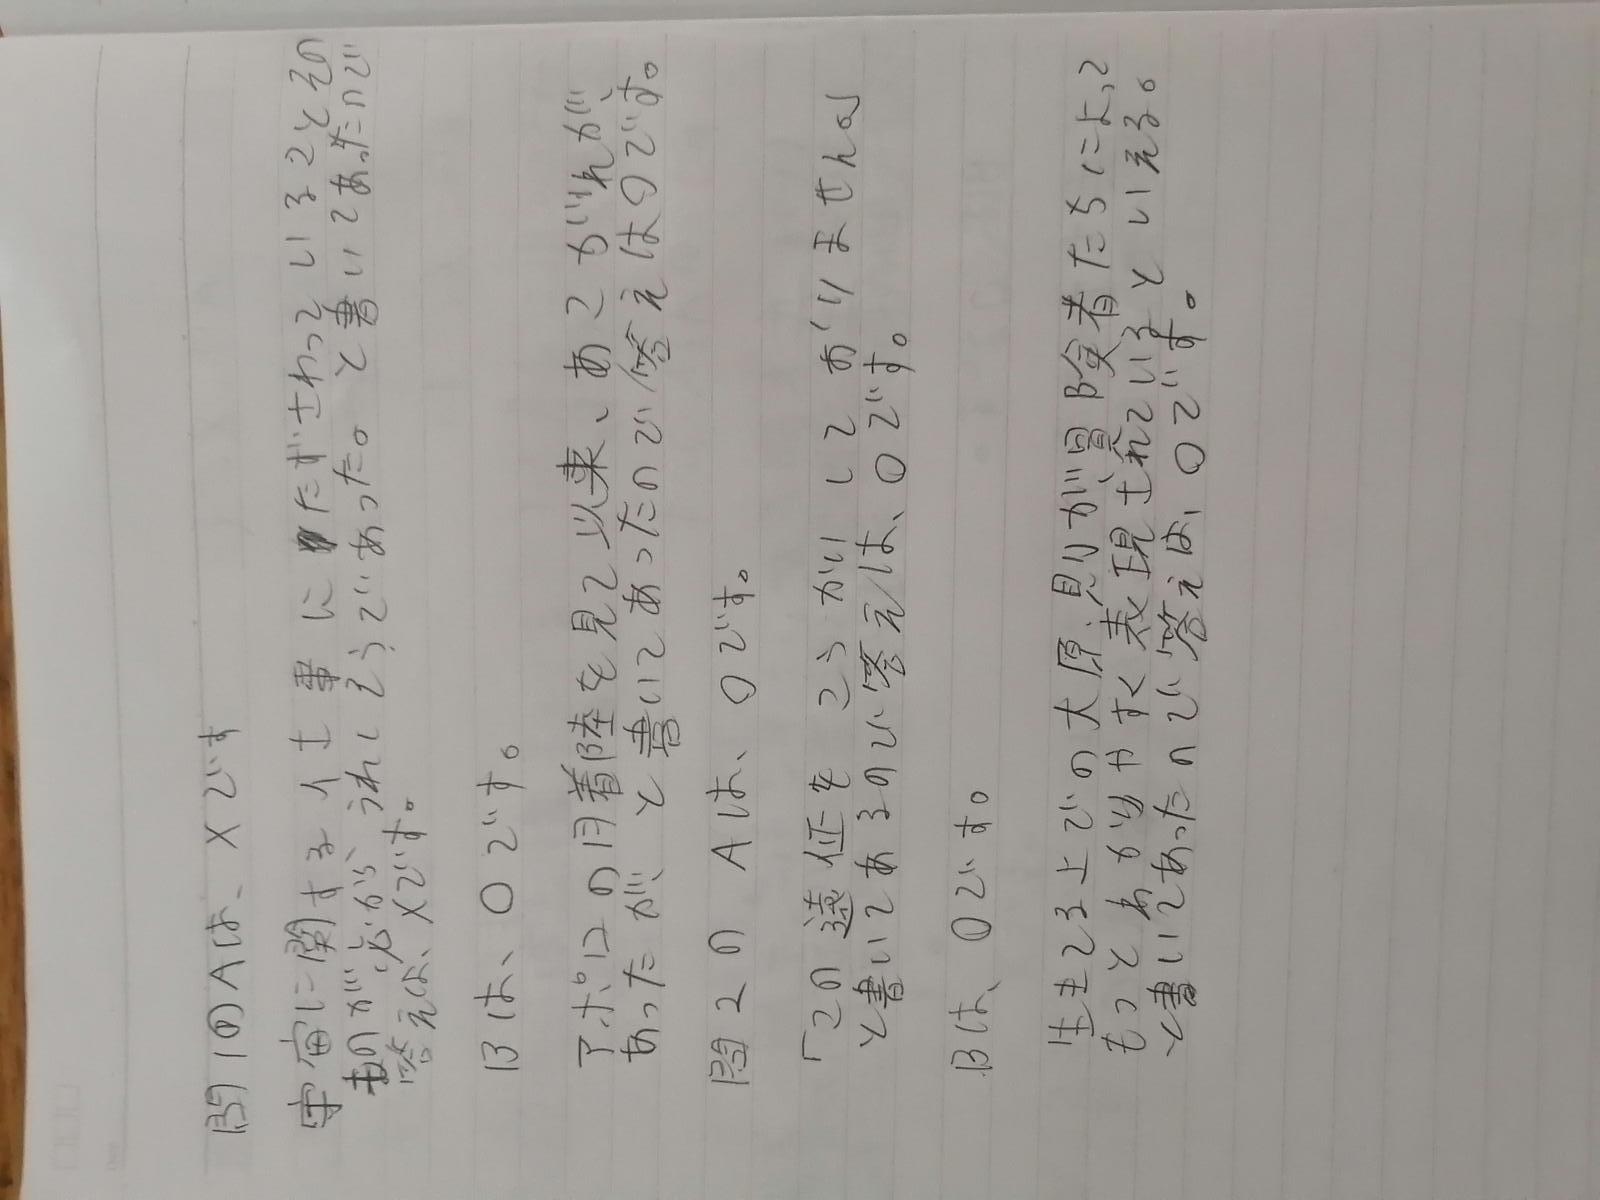 問1のAは、×です
宇宙に関する仕事にたずさわっていることその
ものが、必から、うれしそうであった。と書いてあったので
答えは、×です。
Bは、○です。
アポロの月着陸を見て以来、あこがれが、
あったが と書いてあったので答えは○です。
問2のAは、○です。
「この遠征をこうかいしておりません
と書いてあるので答えは、○です。
Bは、○です。
生きる上での大原則が冒険者たちによって
もっとわかりやすく表現されているといえる。
と書いてあったので答えは、○です。